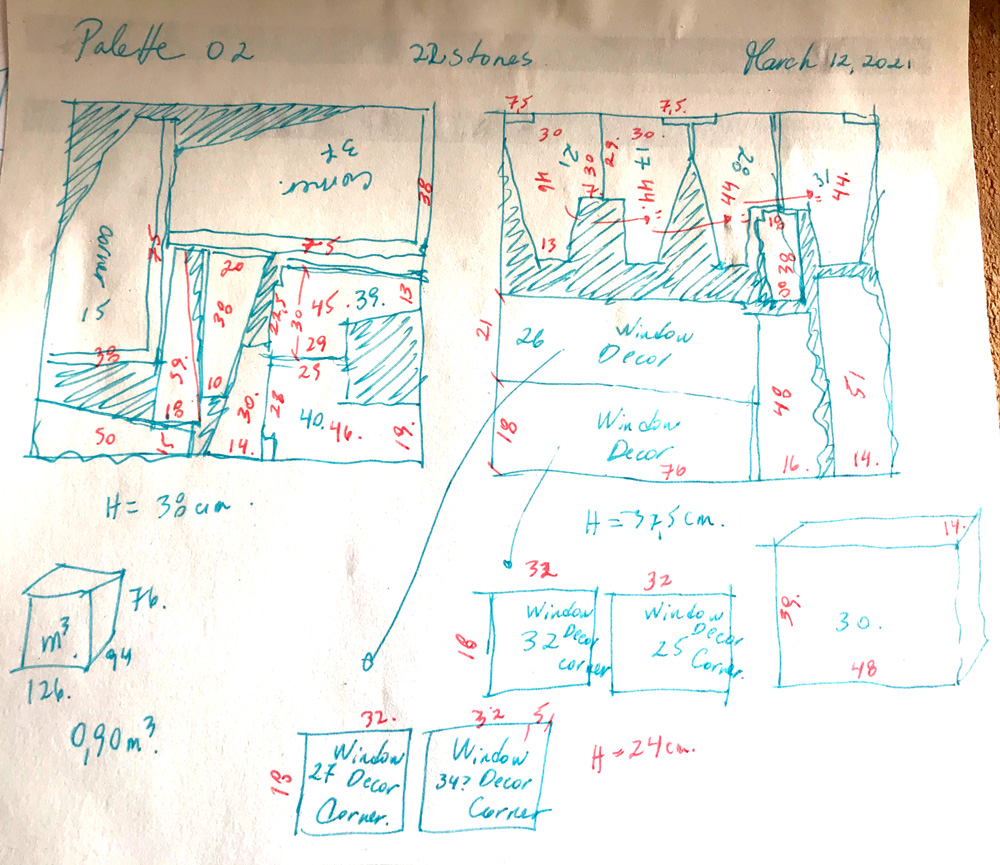 Palette 02
22 stones
March 12, 2021
37
Corner.
38
75
Corner
15
75
38
20
38
10
59.
18
50
15
30.
14.
22,5
30
45.
39.
13
29
25
28
40.
46.
19.
H = 38 cm.
7,5
7,5
30
30
29.
21
46
30
17
44.
20
44
31
44.
13
18
38
21
26
Window
Decor
18
Window
Decor
76
48
16.
51
14.
H = 37,5 cm.
m³
76.
94
126.
0,90 m³.
32
18
Window
32 Decor
corner
32
Window
Decor
25
Corner.
14.
39.
30.
48
32.
Window
27 Decor
Corner.
32
5,
Window
34? Decor
Corner
H = 24 cm.